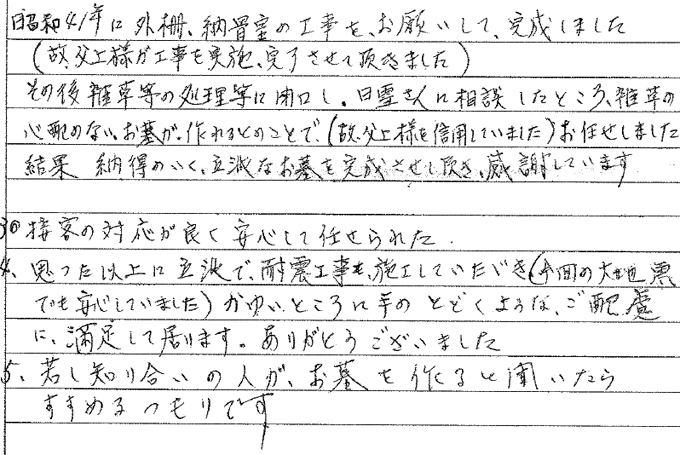 昭和41年に外柵、納骨室の工事を、お願いして、完成しました
(故、父上様が工事を実施、完了させて頂きました)
その後雑草等の処理等に閉口し、日霊さんに相談したところ、雑草の
心配のない、お墓が、作れるとのことで、(故、父上様を信用していました)お任せしました
結果 納得のいく、立派なお墓を、完成させて頂き、感謝しています
3. 接客の対応が良く安心して任せられた.
4、思った以上に立派で、耐震工事も、施工していただき(今回の大地震
でも安心していました)かゆいところに手のとどくような、ご配慮
に、満足して居ります。ありがとうございました
5、若し知り合いの人が、お墓を作ると聞いたら
すすめるつもりです